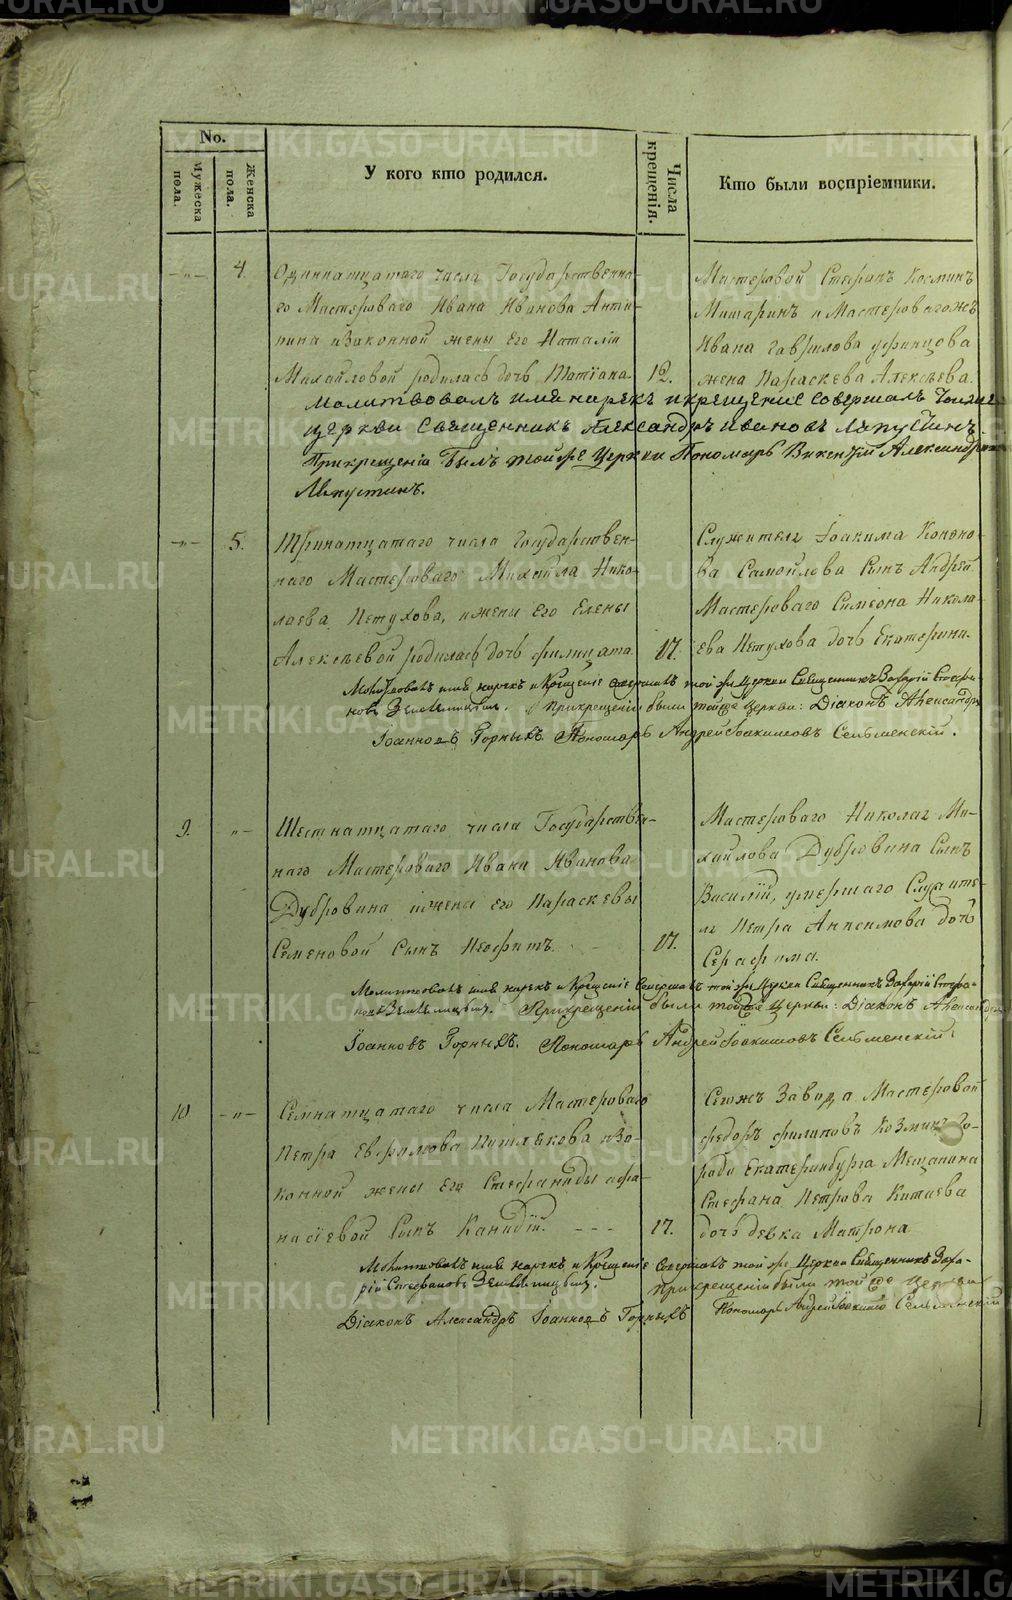 METRIKI.GASO-URAL.RU
No.
Мужеска пола.
Женска пола.
У кого кто родился.
Числа крещенія.
Кто были воспріемники.
4.
Одиннатцатаго числа Государственна-
го Мастероваго Ивана Иванова Анти-
пина и Законной жены его Наталіи
Михайловой родилась дочь Татіана
12.
Мастеровой Стефанъ Косминъ
Мишаринъ и Мастероваго жъ
Ивана Гаврилова
жена Параскева Алексѣева.
Молитвовалъ имя нарекъ и крещеніе совершалъ тойже
церкви Священникъ Александръ Ивановъ Ляпустинъ.
При крещеніи былъ той же Церкви Пономарь Викентій Александровъ
Ляпустинъ.
5.
Тринатцатаго числа Государствен-
наго Мастероваго Михайла Нико-
лаева Петухова, и жены Его Елены
Алексѣевой родилась дочь Филицата
17.
Служителя Іоакима Конно-
ва Самойлова Сынъ Андрей
Мастероваго Симеона Никола-
ева Петухова дочь Екатерина
Молитвовалъ имя нарекъ и Крещеніе совершалъ той же Церкви Священникъ Захарій Стефа-
новъ При крещеніи были тойже Церкви: Діаконъ Александръ
Іоанновъ Горныхъ. Пономарь Андрей Іоакимовъ Сельменскій.
9.
Шестнатцатаго числа Государствен-
наго Мастероваго Ивана Иванова
Дубровина и жены его Параскевы
Семеновой Сынъ Неофитъ.
17.
Мастероваго Николая Ми-
хайлова Дубровина Сынъ
Василій, умершаго Служите-
ля Петра Анисимова дочь
Серафима.
Молитвовалъ имя нарекъ и Крещеніе Совершалъ той же Церкви Священникъ Захарій Стефа-
новъ При крещеніи были тойже Церкви: Діаконъ Александръ
Іоанновъ Горныхъ. Пономарь Андрей Іоакимовъ Сельменскій.
10.
Семнатцатаго числа Мастероваго
Петра Ефимова и За-
конной жены Его Стефаниды Афа-
насіевой Сынъ Канидій.
17.
Сегожъ Завода Мастеровой
Федоръ Филиповъ Козминъ Го-
рода Екатеринбурга Мещанина
Стефана Петрова Китаева
дочь девка Матрона
Молитвовалъ имя нарекъ и Крещеніе Совершалъ той же Церкви Священникъ Заха-
рій Стефановъ При крещеніи были той же Церкви
Діаконъ Александръ Іоанновъ Горныхъ Пономарь Андрей Іоакимовъ Сельменскій